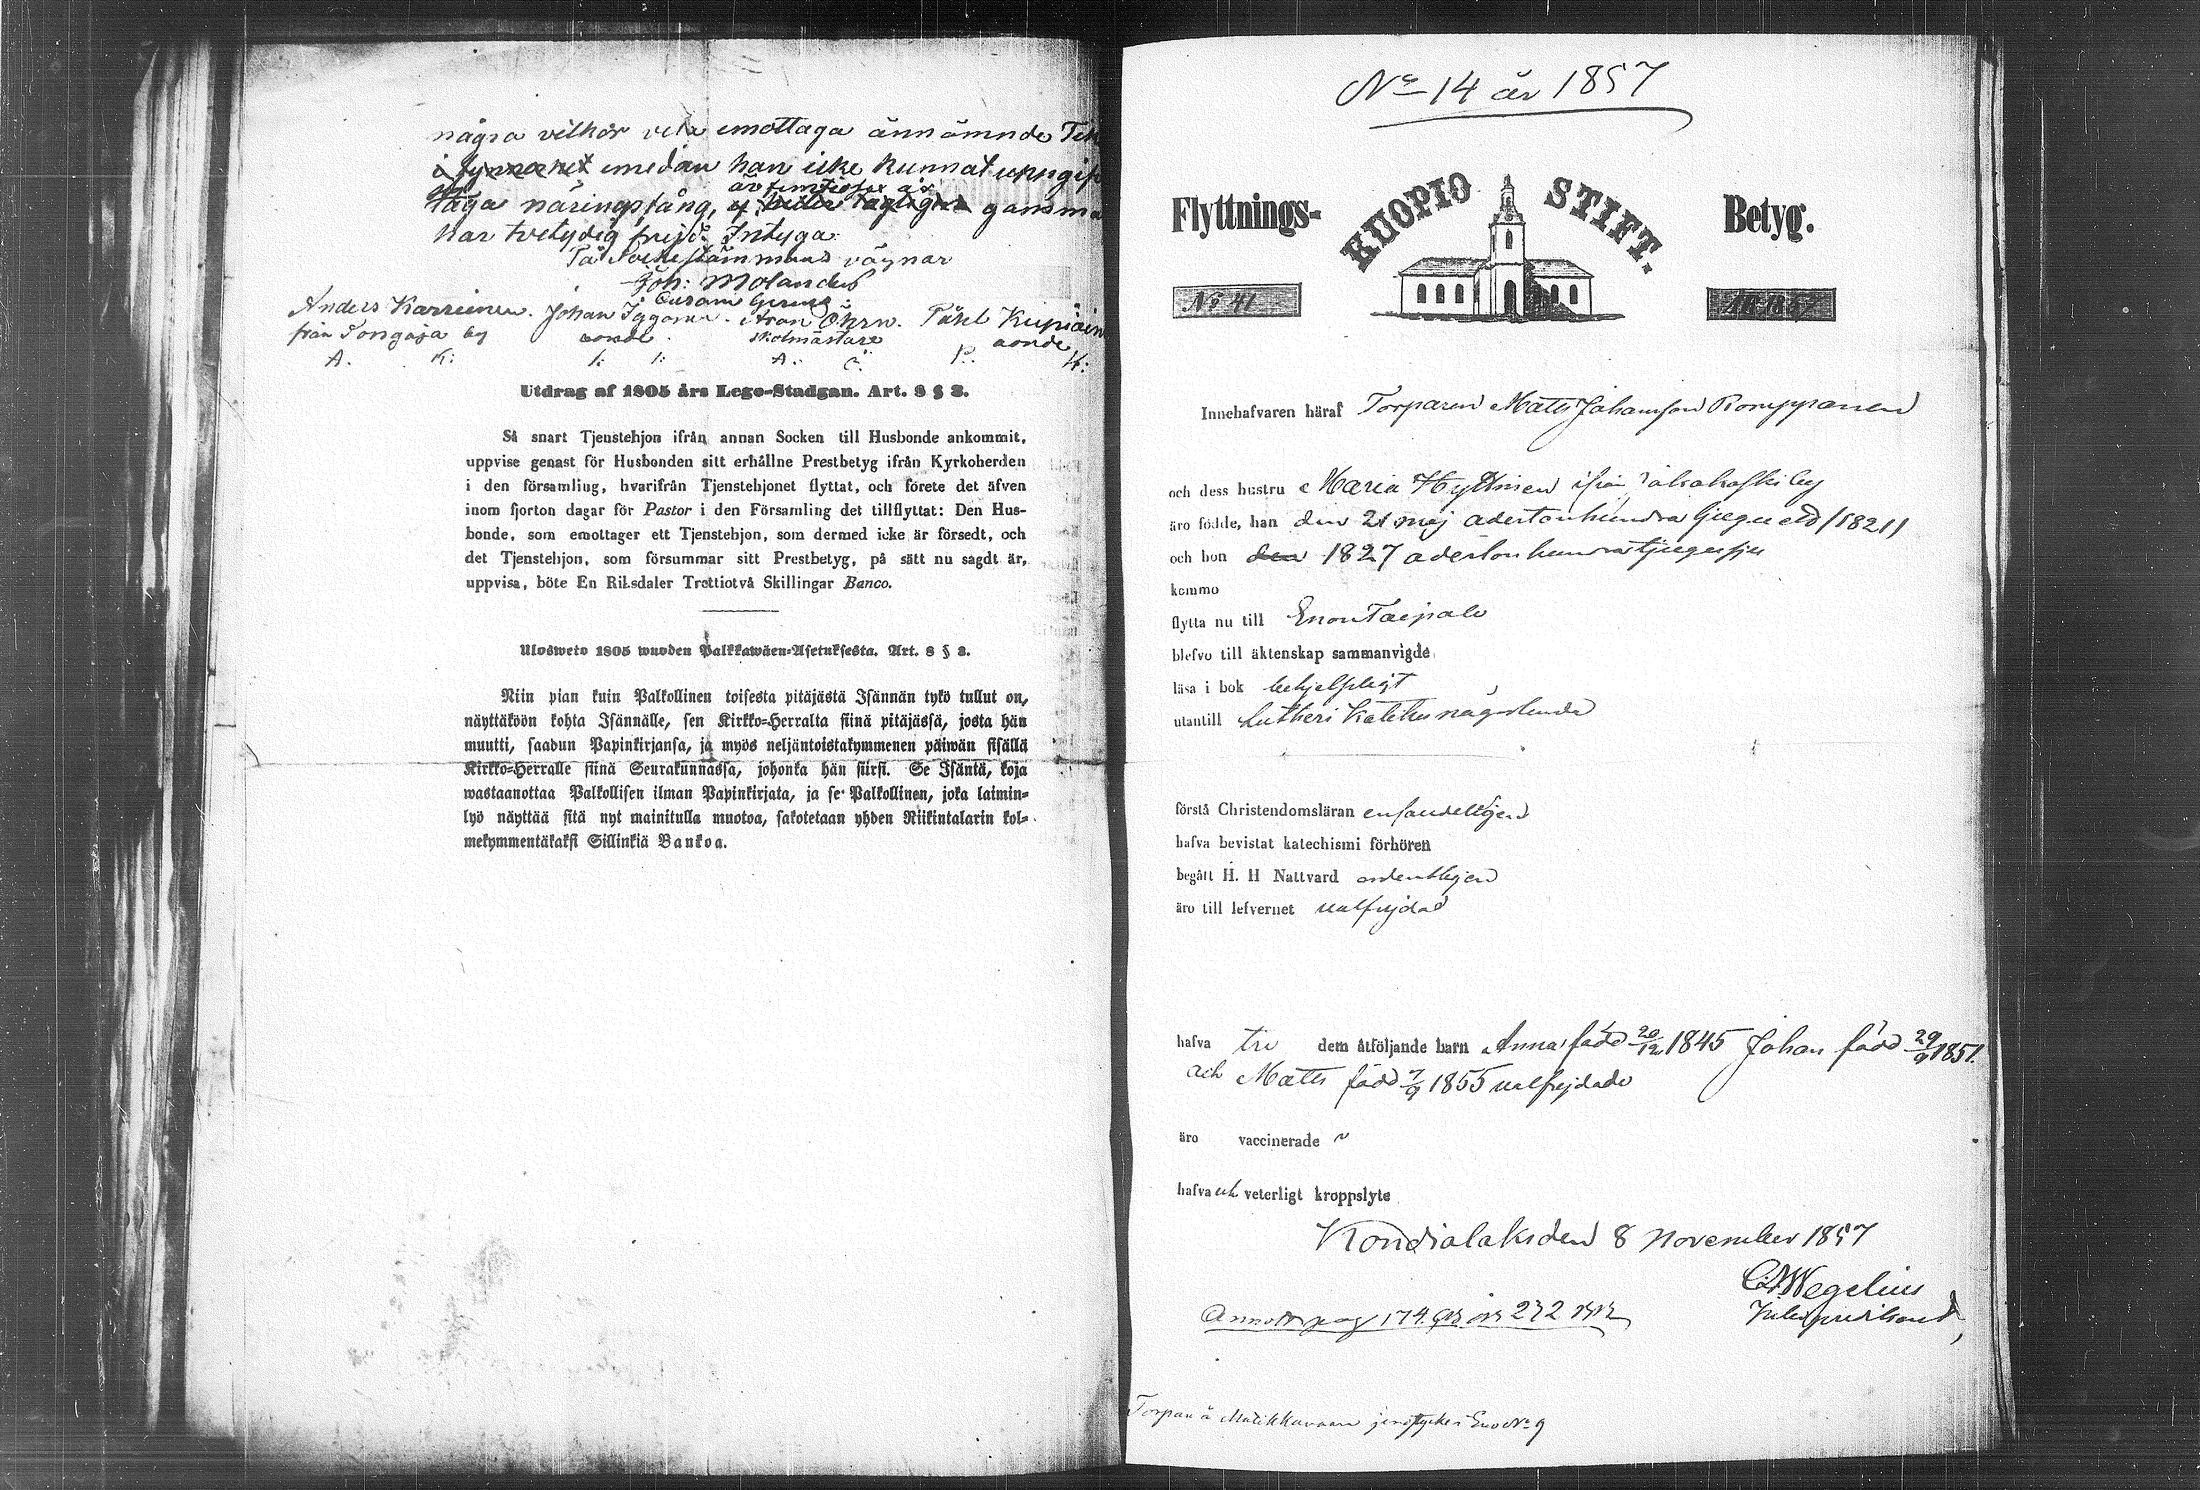 några vilkor vela emottaga ännämnde
emedan han icke kunnat uppgif
laga näringsfång, gansma
har tvetydig frejd. Intyga:
På Sockestämmans vägnar
Joh: Molander
Anders Karreinen. Johan Iggonen. Aron Öhrn. Påhl Kupiain
från Tongaja by bonde skolmästare bonde
A. K: I: I: A: Ö: P: K:
Utdrag af 1805 års Lego-Stadgan. Art. 8 § 3.
Så snart Tjenstehjon ifrån annan Socken till Husbonde ankommit,
uppvise genast för Husbonden sitt erhållne Prestbetyg ifrån Kyrkoherden
i den församling, hvarifrån Tjenstehjonet flyttat, och förete det äfven
inom fjorton dagar för Pastor i den Församling det tillflyttat: Den Hus-
bonde, som emottager ett Tjenstehjon, som dermed icke är försedt, och
det Tjenstehjon, som försummar sitt Prestbetyg, på sätt nu sagdt är,
uppvisa, böte En Riksdaler Trettiotvå Skillingar Banco.
Ulosweto 1805 wuoden Palkkawäen-Asetuksesta. Art. 8 § 3.
Niin pian kuin Palkollinen toisesta pitäjästä Isännän tykö tullut on,
näyttäköön kohta Isännälle, sen Kirkko-Herralta siinä pitäjässä, josta hän
muutti, saadun Papinkirjansa, ja myös neljäntoistakymmenen päiwän sisällä
Kirkko-Herralle siinä Seurakunnassa, johonka hän siirsi. Se Isäntä, koja
wastaanottaa Palkollisen ilman Papinkirjata, ja se Palkollinen, joka laimin-
lyö näyttää sitä nyt mainitulla muotoa, sakotetaan yhden Riikintalarin kol-
mekymmentäkaksi Sillinkiä Bankoa.
No 14 år 1857
Flyttnings- KUOPIO STIFT. Betyg.
No 41 År 1857
Innehafvaren häraf Torparen Matts Johansson Romppanen
och dess hustru Maria Hyttinen ifrån Jakokoski by
äro födde, han den 21 maj adertonhundra tjugu ett /1821/
och hon den 1827 adertonhundratjugusju
komma
flytta nu till Enontaipale
blefvo till äktenskap sammanvigde
läsa i bok behjelpligt
utantill Lutheri Kateches någorlunda
förstå Christendomsläran enfaldeligen
hafva bevistat katechismi förhören
begått H. H Nattvard ordentligen
äro till lefvernet välfrejdad
hafva tre dem åtföljande barn Anna född 20/12 1845 Johan född 29/9 1851.
och Matts född 7/9 1855 välfrejdade
äro vaccinerade
hafva ick veterligt kroppslyte
Kondialaks den 8 November 1857
C. Wegelius
Annotr pag 174 och 232
Torpare å Matikkavaara Eno No 9